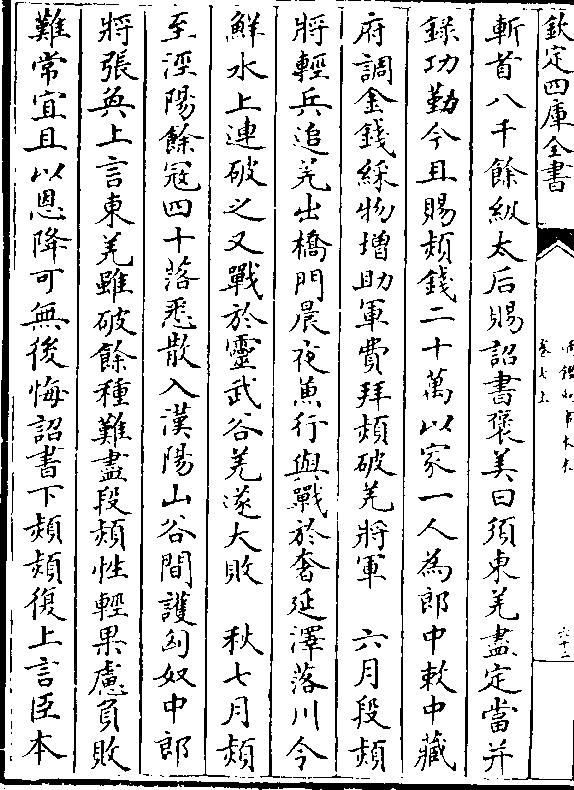 欽定四庫全書
斬首八千餘級太后賜詔書褒美曰須東羌盡定當并
錄功勤今且賜熲錢二十萬以家一人為郎中敕中藏
府調金錢綵物增助軍費拜熲破羌將軍 六月段熲
將輕兵追羌出橋門晨夜兼行與戰於奢延澤落川令
鮮水上連破之又戰於靈武谷羌遂大敗 秋七月熲
至涇陽餘寇四十落悉散入漢陽山谷間護匈奴中郎
將張奐上言東羌雖破餘種難盡段熲性輕果慮負敗
難常宜且以恩降可無後悔詔書下熲熲復上言臣本